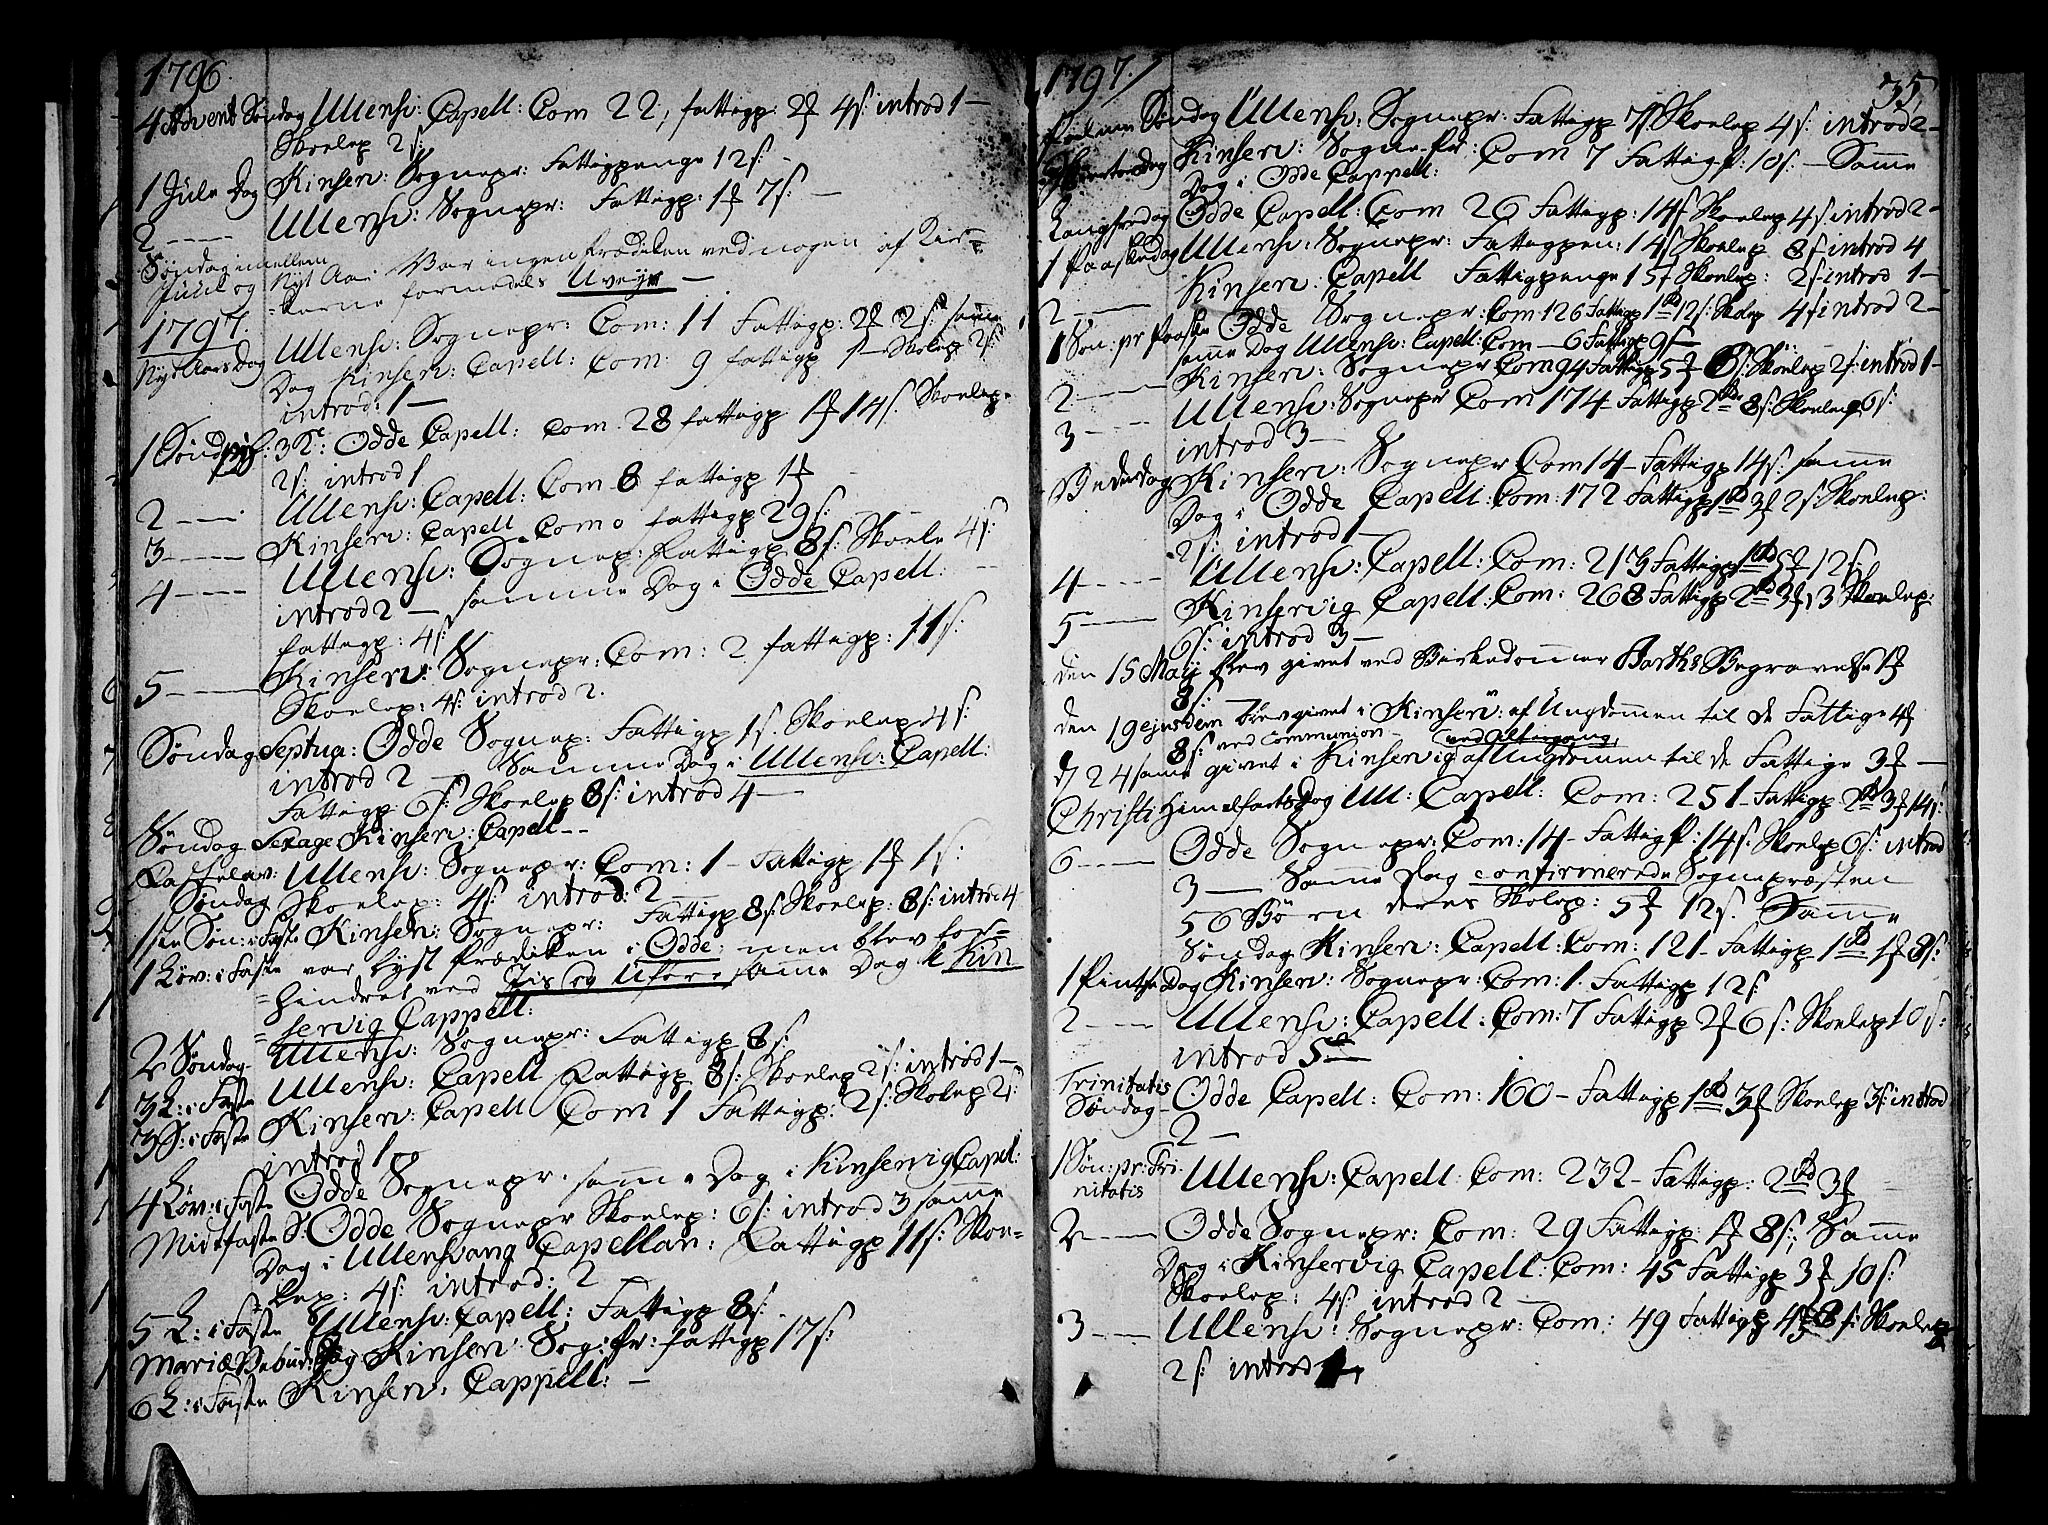 1796.
4 Advent Søndag Ullensv: Capell: Com 22; fattigp: 2 4s: introd 1 —
Skolep 2s:
1 Jule Dag Kinserv: Sognepr: Fattigpenge 12s: —
2 — — Ullensv: Sognepr: Fattigp: 1 7s: —
Søndag imellem
Juul og Nyt Aar: Var ingen Prædiken ved nogen af Kir=
=kerne formedelst Uveyr —
1797.
Nyt Aars Dag Ullensv: Sognepr: Com: 11 Fattigp: 2 2s: samme
Dag Kinserv: Capell: Com: 9 fattigp Skolep 2s:
introd: 1 —
1 Sønd: Odde Capell: Com: 28 fattigp 1 14s: Skolep:
2s: introd 1
2 — — Ullensv: Capell: Com 8 fattigp 1
3 — — Kinserv: Capell Com 0 fattigp 29s:
4 — — Ullensv: Sognep: Fattigp 8s: Skole 4s:
introd 2 — samme Dag i Odde Capell:
fattigp: 4s:
5 — — Kinserv: Sognepr: Com: 2 fattigp: 11s:
Skolep: 4s: introd 2.
Søndag Septua: Odde Sognep: Fattigp 1s. Skolep 4s:
introd 2 — Samme Dag i Ullensv: Capell:
Fattigp: 6s: Skolep 8s: introd 4 —
Søndag Sexage Kinserv: Capell — —
Fastelav: Ullensv: Sognepr: Com: 1 — Fattigp 1 1s:
Søndag Skolep: 4s: introd: 2 —
1ste Søn: i Faste Kinserv: Sognepr: Fattigp 8s: Skolep: 8s: intro: 4
1 Løv: i Faste var lyst Prædiken i Odde: men blev for=
=hindret ved Iis og Uføre samme Dag i Kin
=servig Cappell:
2 Søndag — Ullensv: Sognepr: Fattigp 8s:
3 L: i Faste Ullensv: Capell Fattigp 8s: Skolep 2s: introd 1 —
3 S: i Faste Kinserv: Capell Com 1 Fattigp: 2s: Skolep 2s:
introd 1
4 Løv: i Faste Odde Sognepr: samme Dag i Kinservig Capel:
Midtfaste S: Odde Sognepr Skolep: 6s: introd 3 samme
Dag i Ullensvang Capellan: Fattigp 11s: Skole=
lep: 4s: introd: 2
5 L: i Faste Ullensv: Capell: Fattigp 8s:
Mariæ Bebud: Dag Kinserv: Sog: Pr: fattigp 17s:
6 L: i Faste Kinserv: Cappell: —
1797.
35,
Palme Søndag Ullensv: Sognepr: Fattigp 7s Skolep 4s: introd 2 —
Dag Kinserv: Sogne Pr: Com 7 Fattig p: 10s: — Samme
Dag i Odde Cappell:
Langfredag Odde Capell: Com 26 Fattigp: 14s Skolep 4s introd 2 —
1 Paaskedag Ullensv: Sognepr: Fattigpen: 14s Skolep 8s introd 4
2 — — Kinserv: Capell Fattigpenge 15 Skolep: 2s introd 1 —
1 Søn: pr Paaske Odde Sognepr: Com 126 Fattigp 1 12s: Skolep 4s introd 2 —
samme Dag Ullensv: Capell: Com — 6 Fattigp 9s —
2 — — Kinserv: Sognepr Com 94 Fattigp 5 8s: Skolep 2s: introd 1 —
3 — — Ullensv: Sognepr Com 174 — Fattigp 2 8s: Skolep 6s:
introd 3 —
Bededag Kinserv: Sognepr Com 14 — Fattigp 14s: samme
Dag i Odde Capell: Com: 172 Fattigp 1 3 2s: Skolep:
2s: introd 1 —
4 — — Ullensv: Capell: Com: 213 Fattigp 1 5 12s:
5 — — Kinservig Capell: Com: 268 Fattigp 2 3 13 Skolep:
6s: introd 3 —
den 15 May blev givet ved Birkedommer Barths Begravelse 1
8s:
den 19 ejusdem blev givet i Kinserv: af Ungdommen til de Fattige 4
8s: ved Communion — ved altergang,
d 24 samme givet i Kinservig af Ungdommen til de Fattige 3 —
Christi Himelfarts Dag Ull: Capell: Com: 251 — Fattigp 2 3 14s:
6 — — Odde Sognepr: Com: 14 — Fattig p: 14s: Skolep 6s: introd
3 — Samme Dag confirmerede Sognepræsten
56 Børn deres Skolep: 5 12s. Samme
Søndag Kinserv: Capell: Com: 121 — Fattigp 1 1 8s:
1 Pintse Dag Kinserv: Sognepr: Com: 1. Fattigp 12s:
2 — — Ullensv: Capell: Com: 7 Fattigp 2 6s: Skolep 10s:
introd 5
Trinitatis
Søndag — Odde Capell: Com: 160 — Fattigp 1 3 Skolep 3s: introd
2 —
1 Søn: pr: Tri:
nitatis Ullensv: Capell: Com: 232 — Fattigp: 2 3
2 — — Odde Sognepr: Com: 29 Fattigp: 1 8s:, Samme
Dag i Kinservig Capell: Com: 45 Fattigp 3 10s:
Skolep: 4s: introd 2 —
3 — — Ullensv: Sognepr: Com: 49 Fattigp 4 8s: Skolep
2s: introd 1,